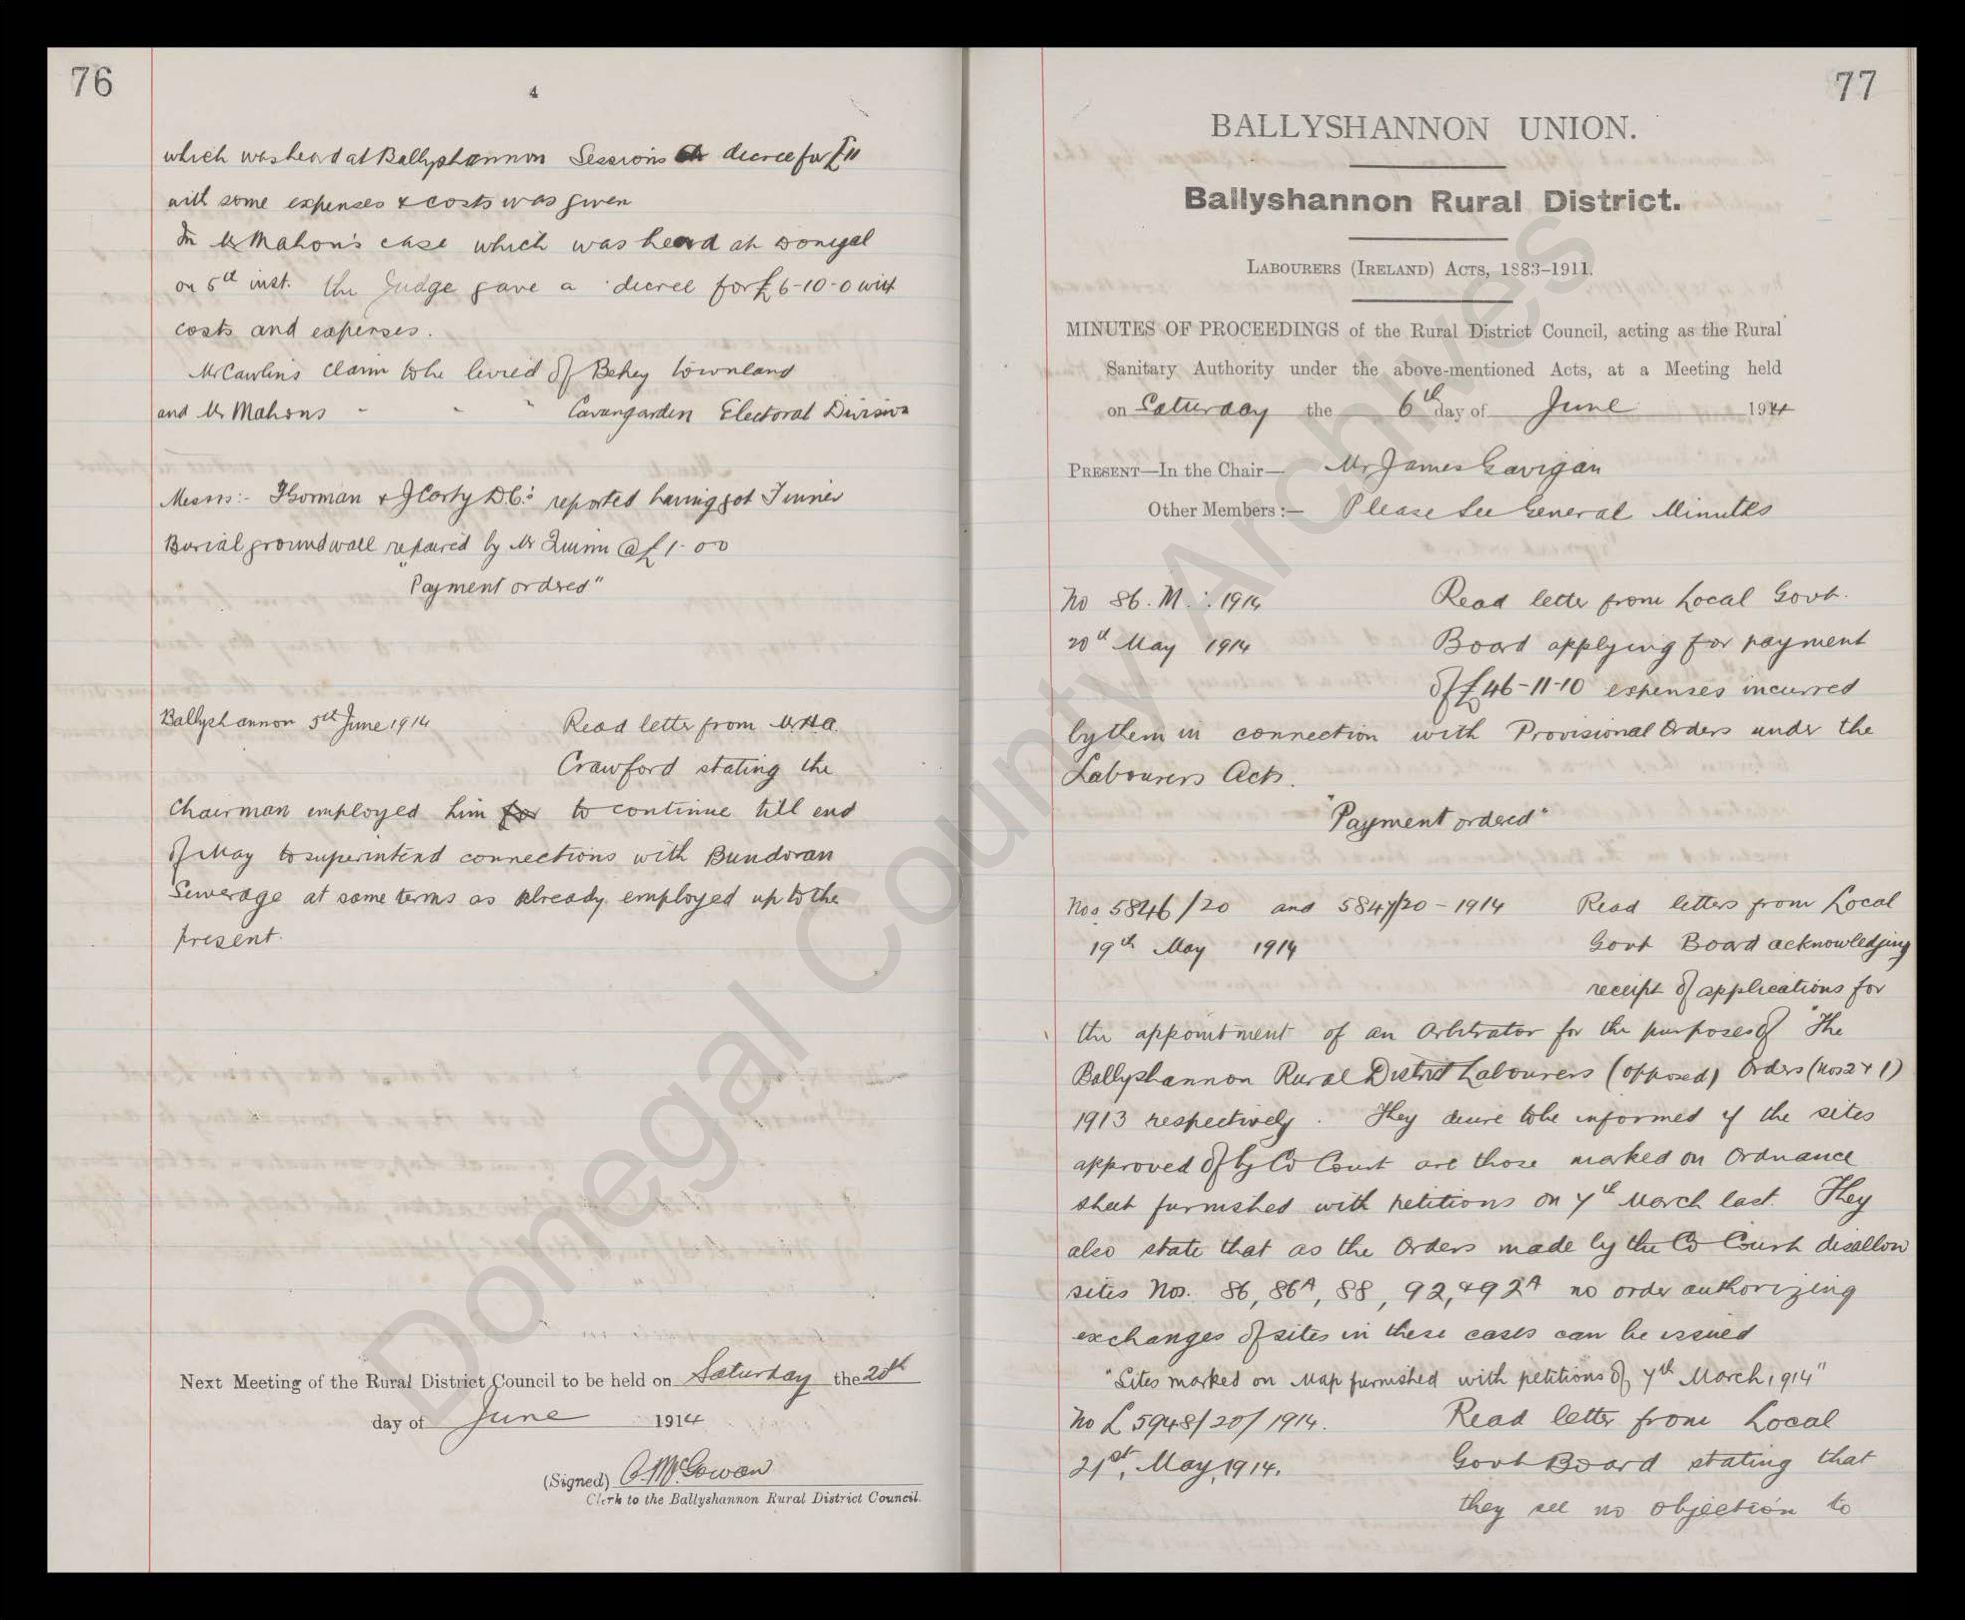 76
4
which was heard at Ballyshannon Sessions decree for £11
with some expenses & costs was given
In Mr Mahon's case which was heard at Donegal
on 5th inst. the Judge gave a decree for £6-10-0 with
costs and expenses.
Mr Cawlins claim to be levied of Behey townland
and Mr Mahons - " " Cavangarden Electoral Division
Messrs:- T Gorman & J Carty D.C.s reported having got Finner
Burial ground wall repaired by Mr Quinn @ £1-0-0
"Payment ordered"
Ballyshannon 5th June 1914 Read letter from Mr H.A.
Crawford stating the
Chairman employed him for to continue till end
of May to superintend connections with Bundoran
Sewerage at same terms as already employed up to the
present.
Next Meeting of the Rural District Council to be held on Saturday the 20th
day of June 1914
(Signed) McGowan
Clerk to the Ballyshannon Rural District Council.
77
BALLYSHANNON UNION.
Ballyshannon Rural District.
LABOURERS (IRELAND) ACTS, 1883-1911.
MINUTES OF PROCEEDINGS of the Rural District Council, acting as the Rural
Sanitary Authority under the above-mentioned Acts, at a Meeting held
on Saturday the 6th day of June 1914
PRESENT—In the Chair— Mr James Gavigan
Other Members:— Please See General Minutes
No 86. M. 1914 Read letter from Local Govt.
20th May 1914 Board applying for payment
of £46-11-10 expenses incurred
by them in connection with Provisional Orders under the
Labourers Acts.
"Payment ordered"
Nos 5846/20 and 5847/20-1914 Read letters from Local
19th May 1914 Govt Board acknowledging
receipt of applications for
the appointment of an Arbitrator for the purposes of "The
Ballyshannon Rural District Labourers (opposed) Orders (nos 2 & 1)
1913 respectively. They desire to be informed if the sites
approved of by Co Court are those marked on Ordnance
sheet furnished with petitions on 7th March last. They
also state that as the Orders made by the Co Court disallow
sites Nos. 86, 86A, 88, 92, & 92A no order authorizing
exchanges of sites in these cases can be issued
"Sites marked on Map furnished with petitions of 7th March 1914"
No L 5948/20/1914. Read letter from Local
21st, May, 1914. Govt Board stating that
they see no objection to
Donegal County Archives